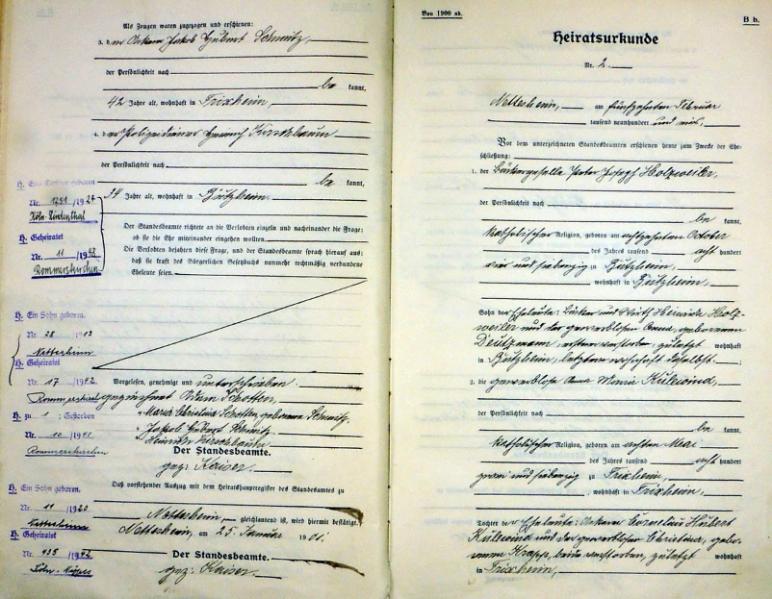 Als Zeugen waren zugezogen und erschienen:
3. der Ackerer Jakob Hubert Schmitz,
der Persönlichkeit nach
be kannt,
42 Jahre alt, wohnhaft in Frixheim,
4. der Polizeidiener Heinrich
der Persönlichkeit nach
be kannt,
34 Jahre alt, wohnhaft in Bützheim.
Der Standesbeamte richtete an die Verlobten einzeln und nacheinander die Frage:
ob sie die Ehe miteinander eingehen wollen.
Die Verlobten bejahten diese Frage, und der Standesbeamte sprach hierauf aus:
daß sie kraft des Bürgerlichen Gesetzbuchs nunmehr rechtmäßig verbundene
Eheleute seien.
Vorgelesen, genehmigt und unterschrieben
gezeichnet Schotten,
Maria Christina Schotten, geborene Schmitz,
Jakob Hubert Schmitz
Heinrich
Der Standesbeamte.
gez: Kaiser.
Daß vorstehender Auszug mit dem Heiratshauptregister des Standesamts zu
Nettesheim gleichlautend ist, wird hiermit bestätigt.
Nettesheim, am 25. Januar 1901.
Der Standesbeamte.
gez: Kaiser.
H. Eine Tochter geboren
Nr. 1291 /19
Köln-Lindenthal
H. Geheiratet
Nr. 11 /19
Rommerskirchen
H. Ein Sohn geboren.
Nr. 28
Nettesheim
H. Geheiratet
Nr. 17
Rommerskirchen
H. zu 1 : Gestorben
Nr. 10
Rommerskirchen
H. Ein Sohn geboren.
Nr. 11 1920
Nettesheim
H. Geheiratet
Nr. 935
Köln-
Von 1900 ab.
B b.
Heiratsurkunde
Nr. 2
Nettesheim, am fünfzehnten Februar
tausend neunhundert und eins,
Vor dem unterzeichneten Standesbeamten erschienen heute zum Zwecke der Ehe-
schließung:
1. der Bäckergeselle Peter Joseph Holzweiler,
der Persönlichkeit nach
be kannt,
katholischer Religion, geboren am achtzehnten October
des Jahres tausend acht hundert
vier und siebenzig zu Bützheim,
wohnhaft in Bützheim,
Sohn der Eheleute: Bäcker und Wirth Heinrich Holz-
weiler und der gewerblosen Anna, geborenen
zuletzt wohnhaft
in Bützheim, letztere wohnhaft daselbst;
2. die gewerblose Anna Maria Külewind,
der Persönlichkeit nach
be kannt,
katholischer Religion, geboren am achten Mai
des Jahres tausend acht hundert
zwei und siebenzig zu Frixheim,
wohnhaft in Frixheim,
Tochter der Eheleute: Ackerer Cornelius Hubert
Külewind und der gewerblosen Christina, gebo-
renen Krapp, beide verstorben, zuletzt wohnhaft
in Frixheim,